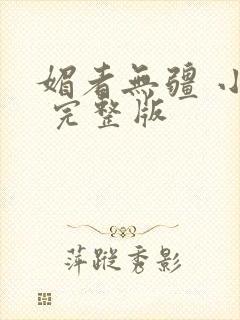 媚者無疆 小
完整版
萍蹤秀影